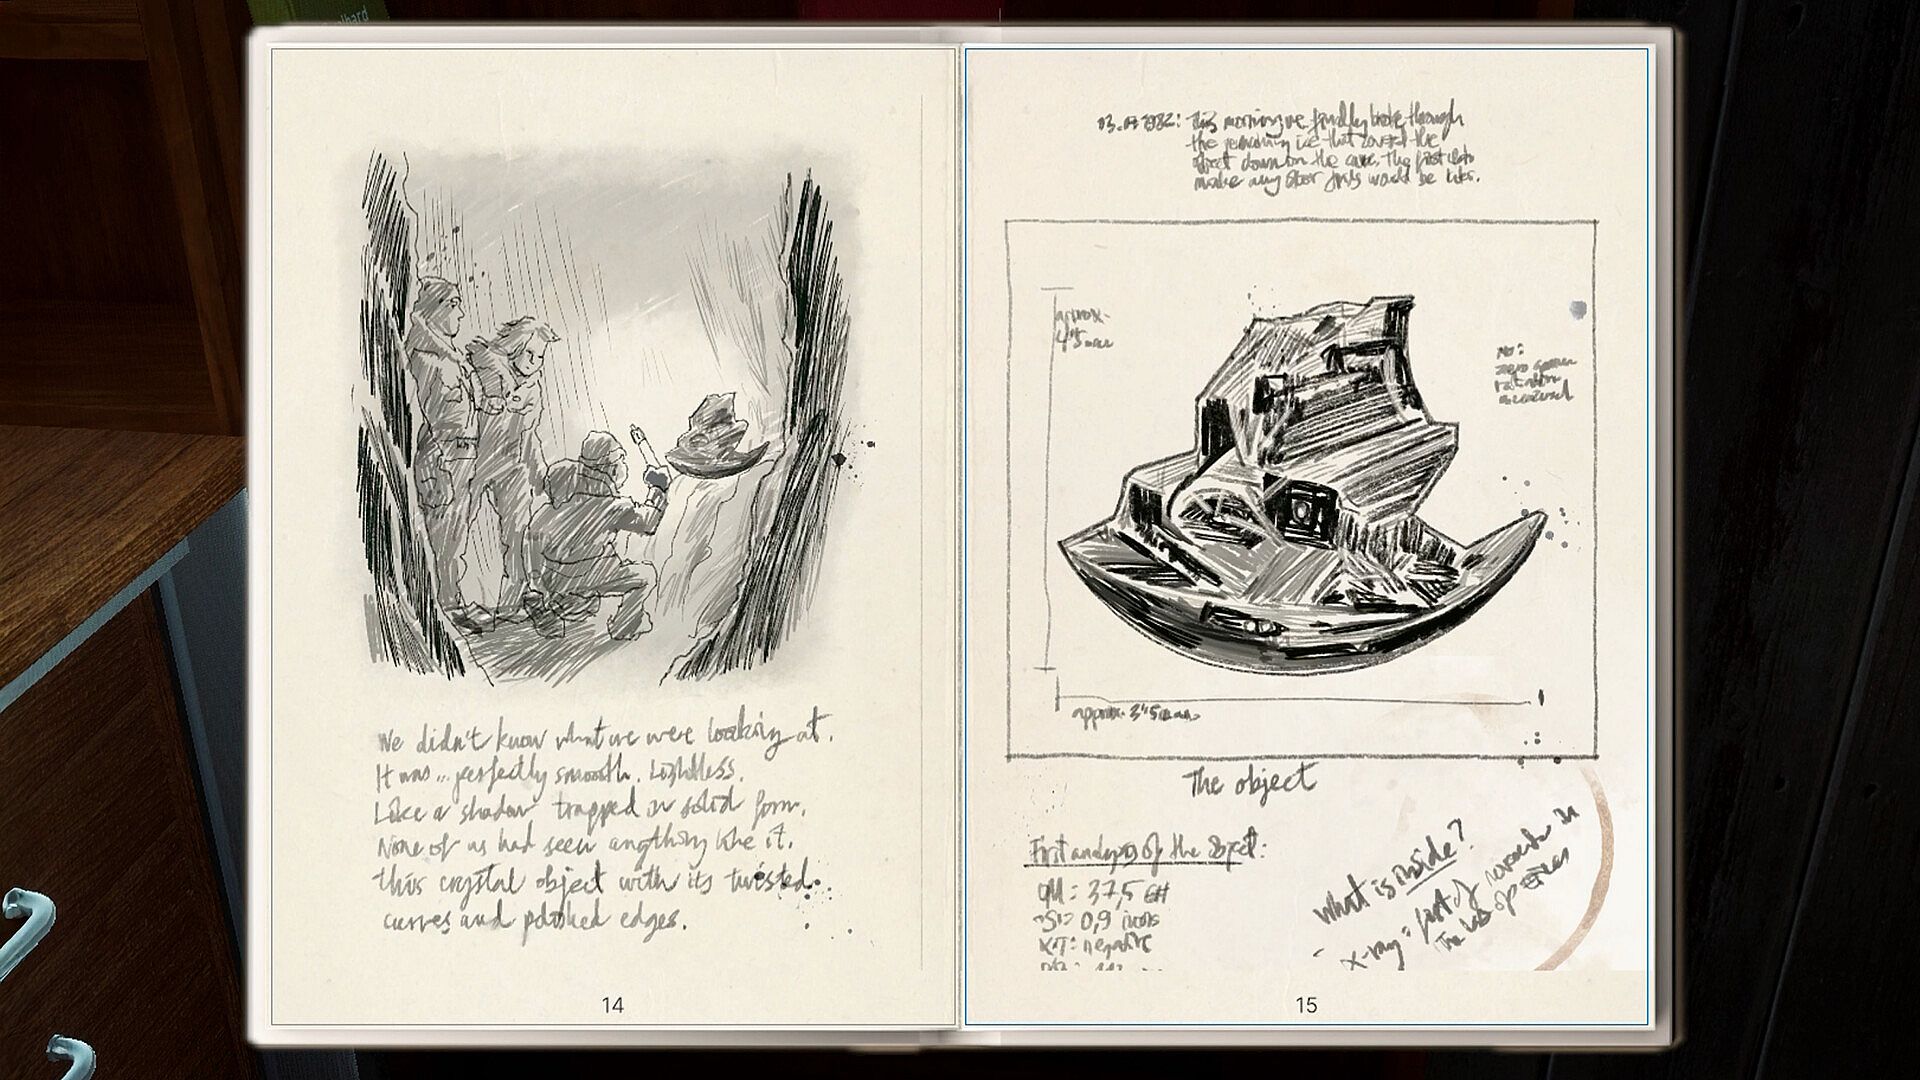 We didn't know what we were looking at.
It was... perfectly smooth. Lightless.
Like a shadow trapped in solid form.
None of us had seen anything like it.
This crystal object with its twisted
curves and polished edges.
14
This morning we finally broke through
the remaining ice that covered the
object down in the cave. The first to
make any other would be
approx.
No:
zero
approx.
The object
First analysis of the object:
QM: 37,5
0,9
X-T: negative
What is inside?
X-ray:
15